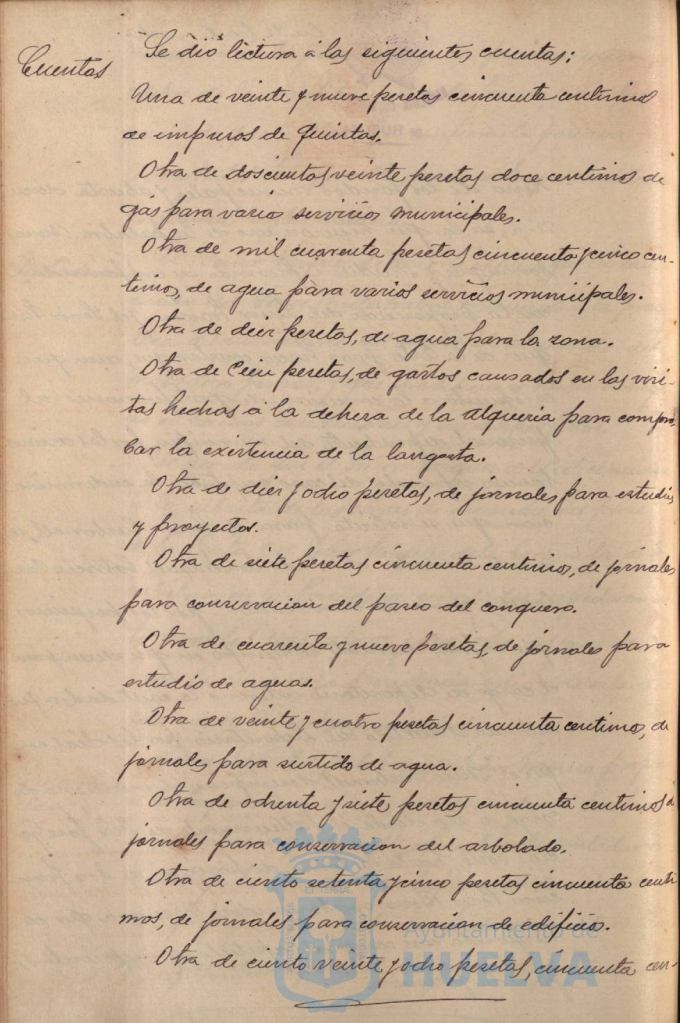 Cuentas
Se dio lectura á las siguientes cuentas:
Una de veinte y nueve pesetas cincuenta centimos
de impresos de Quintas.
Otra de doscientas veinte pesetas doce centimos de
gás para varios servicios municipales.
Otra de mil cuarenta pesetas cincuenta y cinco cen-
timos, de agua para varios servicios municipales.
Otra de diez pesetas, de agua para la zona.
Otra de Cien pesetas, de gastos causados en las visi-
tas hechas á la dehesa de la Alqueria para compro-
bar la existencia de la langosta.
Otra de diez y ocho pesetas, de jornales para estudios
y proyectos.
Otra de siete pesetas cincuenta centimos, de jornales
para conservacion del paseo del conquero.
Otra de cuarenta y nueve pesetas, de jornales para
estudio de aguas.
Otra de veinte y cuatro pesetas cincuenta centimos, de
jornales para surtido de agua.
Otra de ochenta y siete pesetas cincuenta centimos de
jornales para conservacion del arbolado.
Otra de ciento setenta y cinco pesetas cincuenta centi-
mos, de jornales para conservacion de edificios.
Otra de ciento veinte y ocho pesetas, cincuenta cen-
Ayuntamiento de
HUELVA